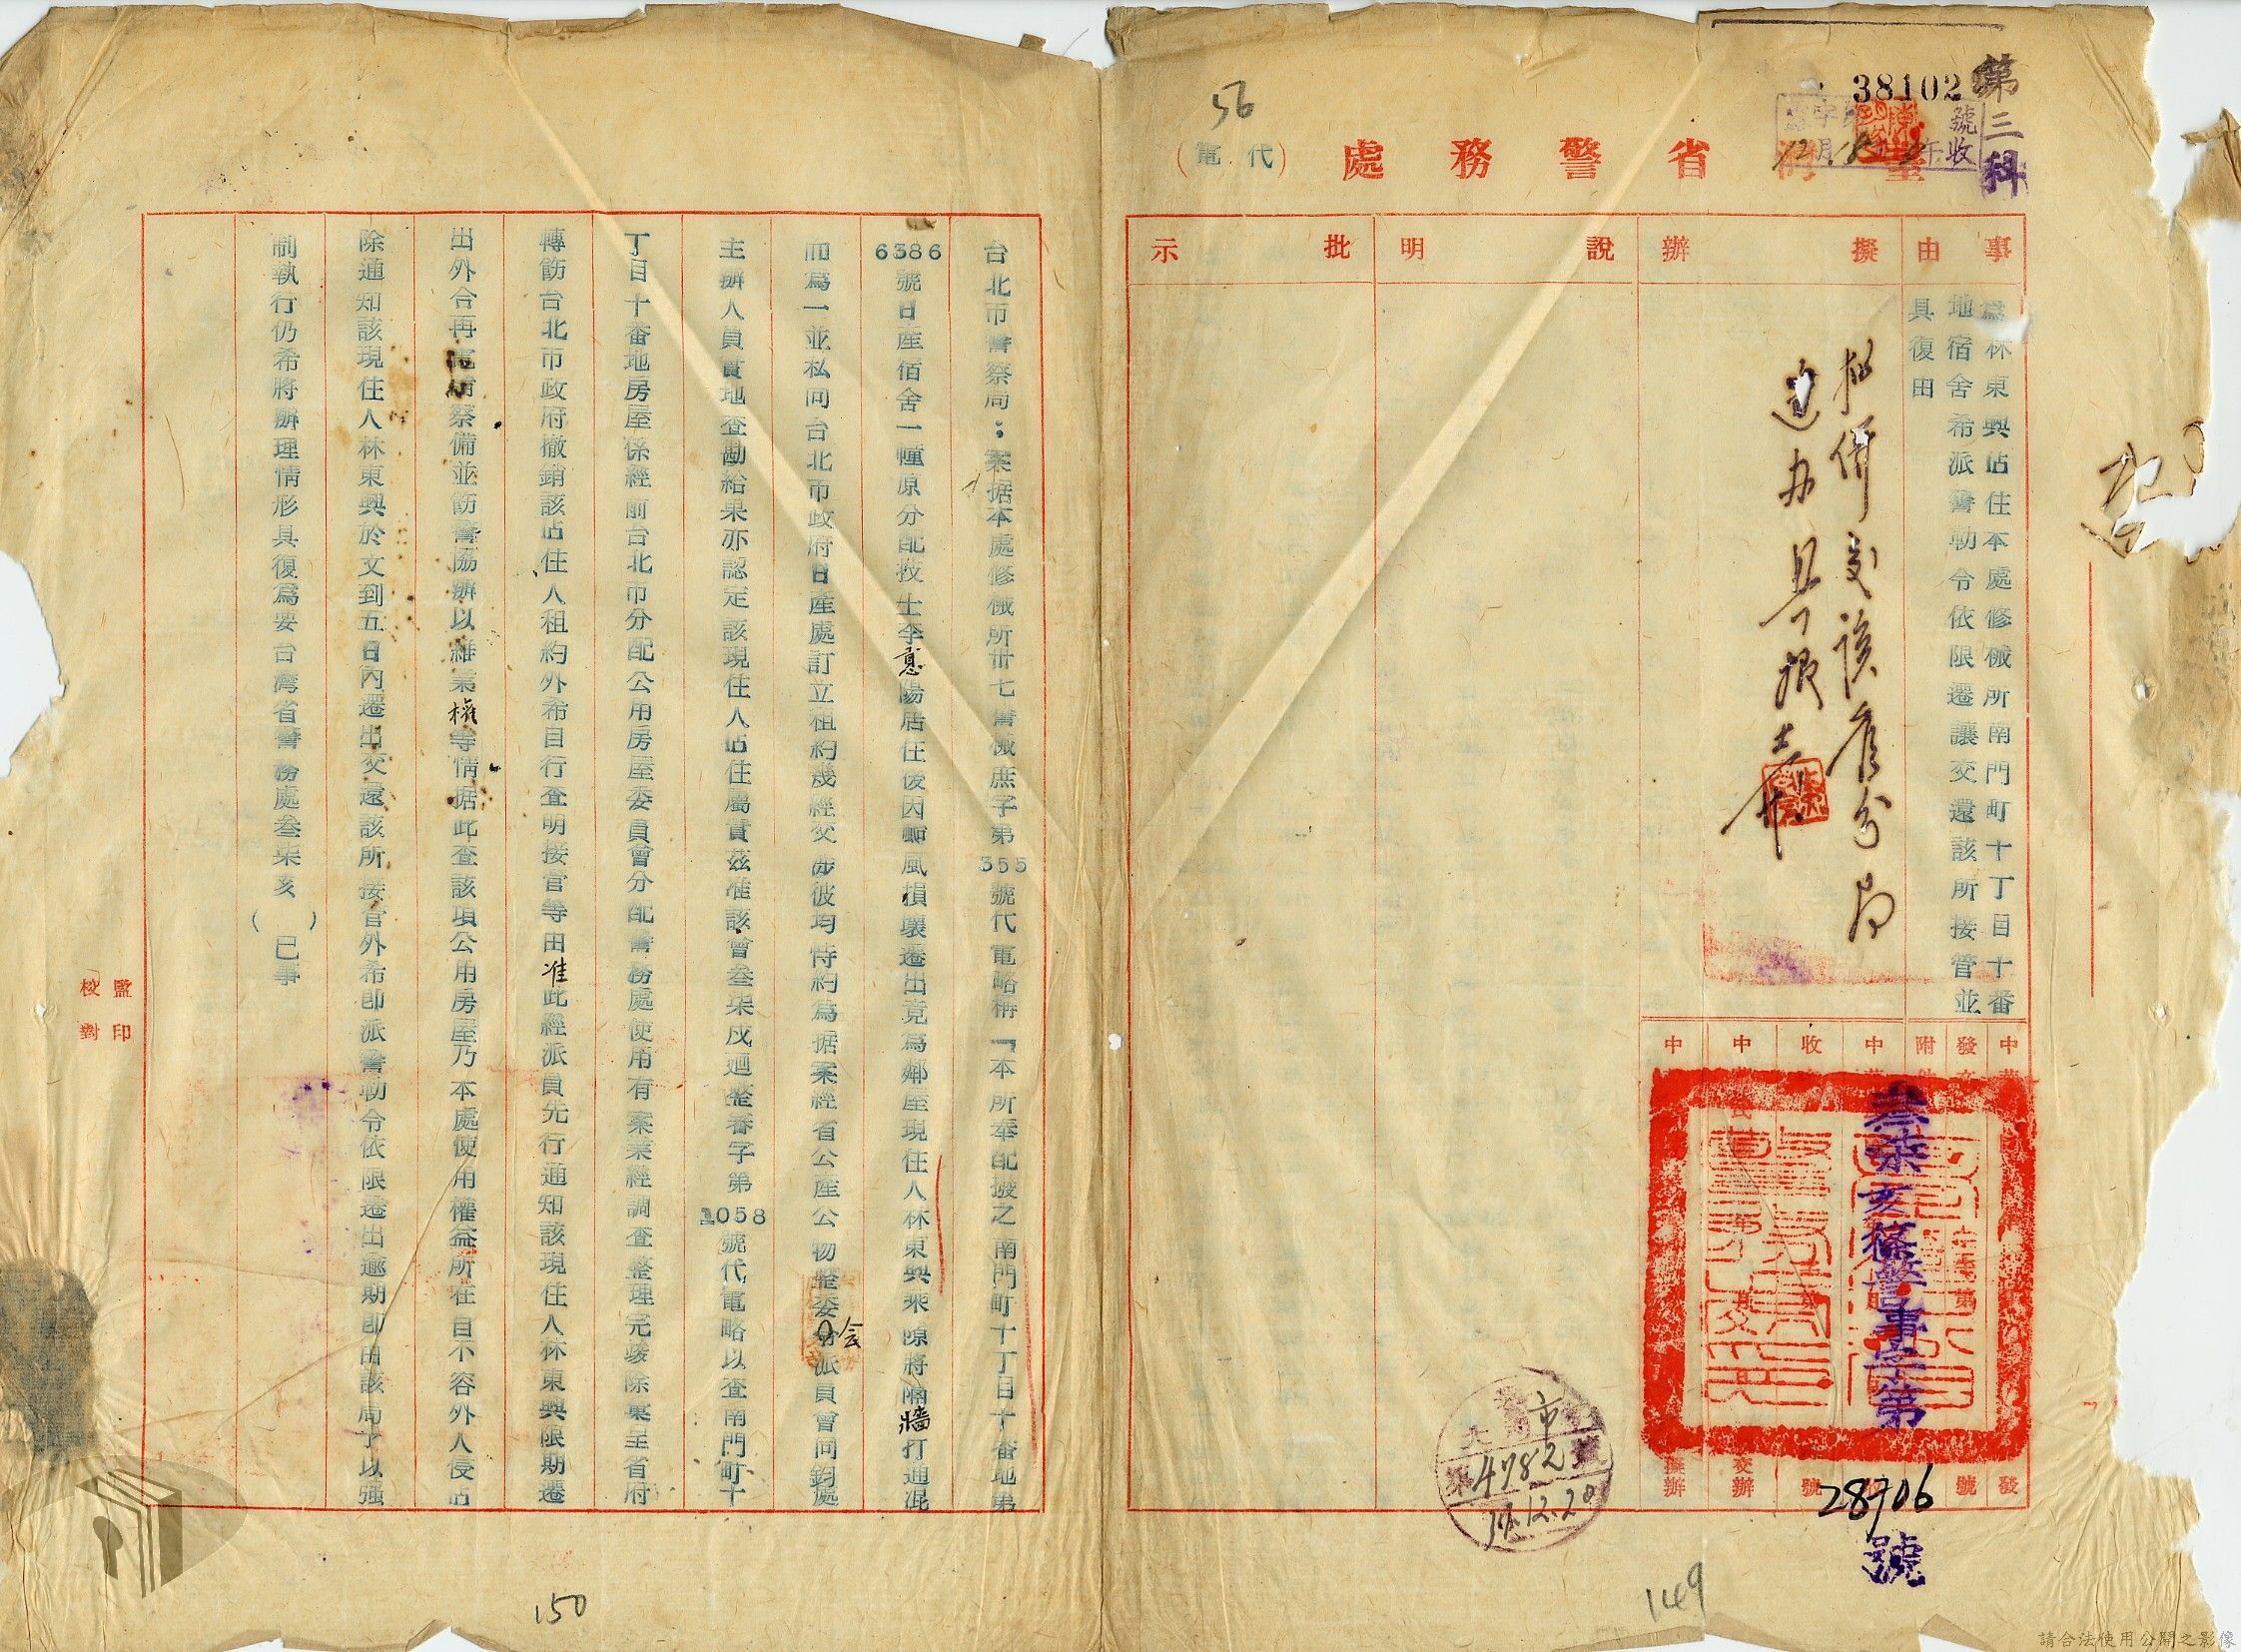 第三科
38102
號收
56
臺灣省警務處(代電)
事由
擬辦
說明
批示
為林東興佔住本處修械所南門町十丁目十番
地宿舍希派警勒令依限遷讓交還該所接管並
具復由
叁柒亥條警事字第
28906
號
4782
37.12.20
149
台北市警察局:案据本處修械所卅七警械庶字第355號代電略稱「本所奉配撥之南門町十丁目十番地第
6386號日產宿舍一幢原分配技士李意陽居住後因颱風損壞遷出竟為鄰屋現住人林東興乘隙將隔牆打通混
而為一並私向台北市政府日產處訂立租約幾經交涉彼均恃約為据案經省公產公物整委会派員會同鈞處
主辦人員實地查勘結果亦認定該現住人佔住屬實茲准該會叁柒戌迴整審字第1058號代電略以查南門町十
丁目十番地房屋係經前台北市分配公用房屋委員會分配警務處使用有案業經調查整理完竣除案呈省府
轉飭台北市政府撤銷該佔住人租約外希自行查明接管等由准此經派員先行通知該現住人林東興限期遷
出外合再電請察備並飭警協辦以維業權等情据此查該項公用房屋乃本處使用權益所在自不容外人侵佔
除通知該現住人林東興於文到五日內遷出交還該所接管外希即派警勒令依限遷出逾期即由該局予以強
制執行仍希將辦理情形具復為要台灣省警務處叁柒亥( )巳事
監印
校對
150
請合法使用公開之影像